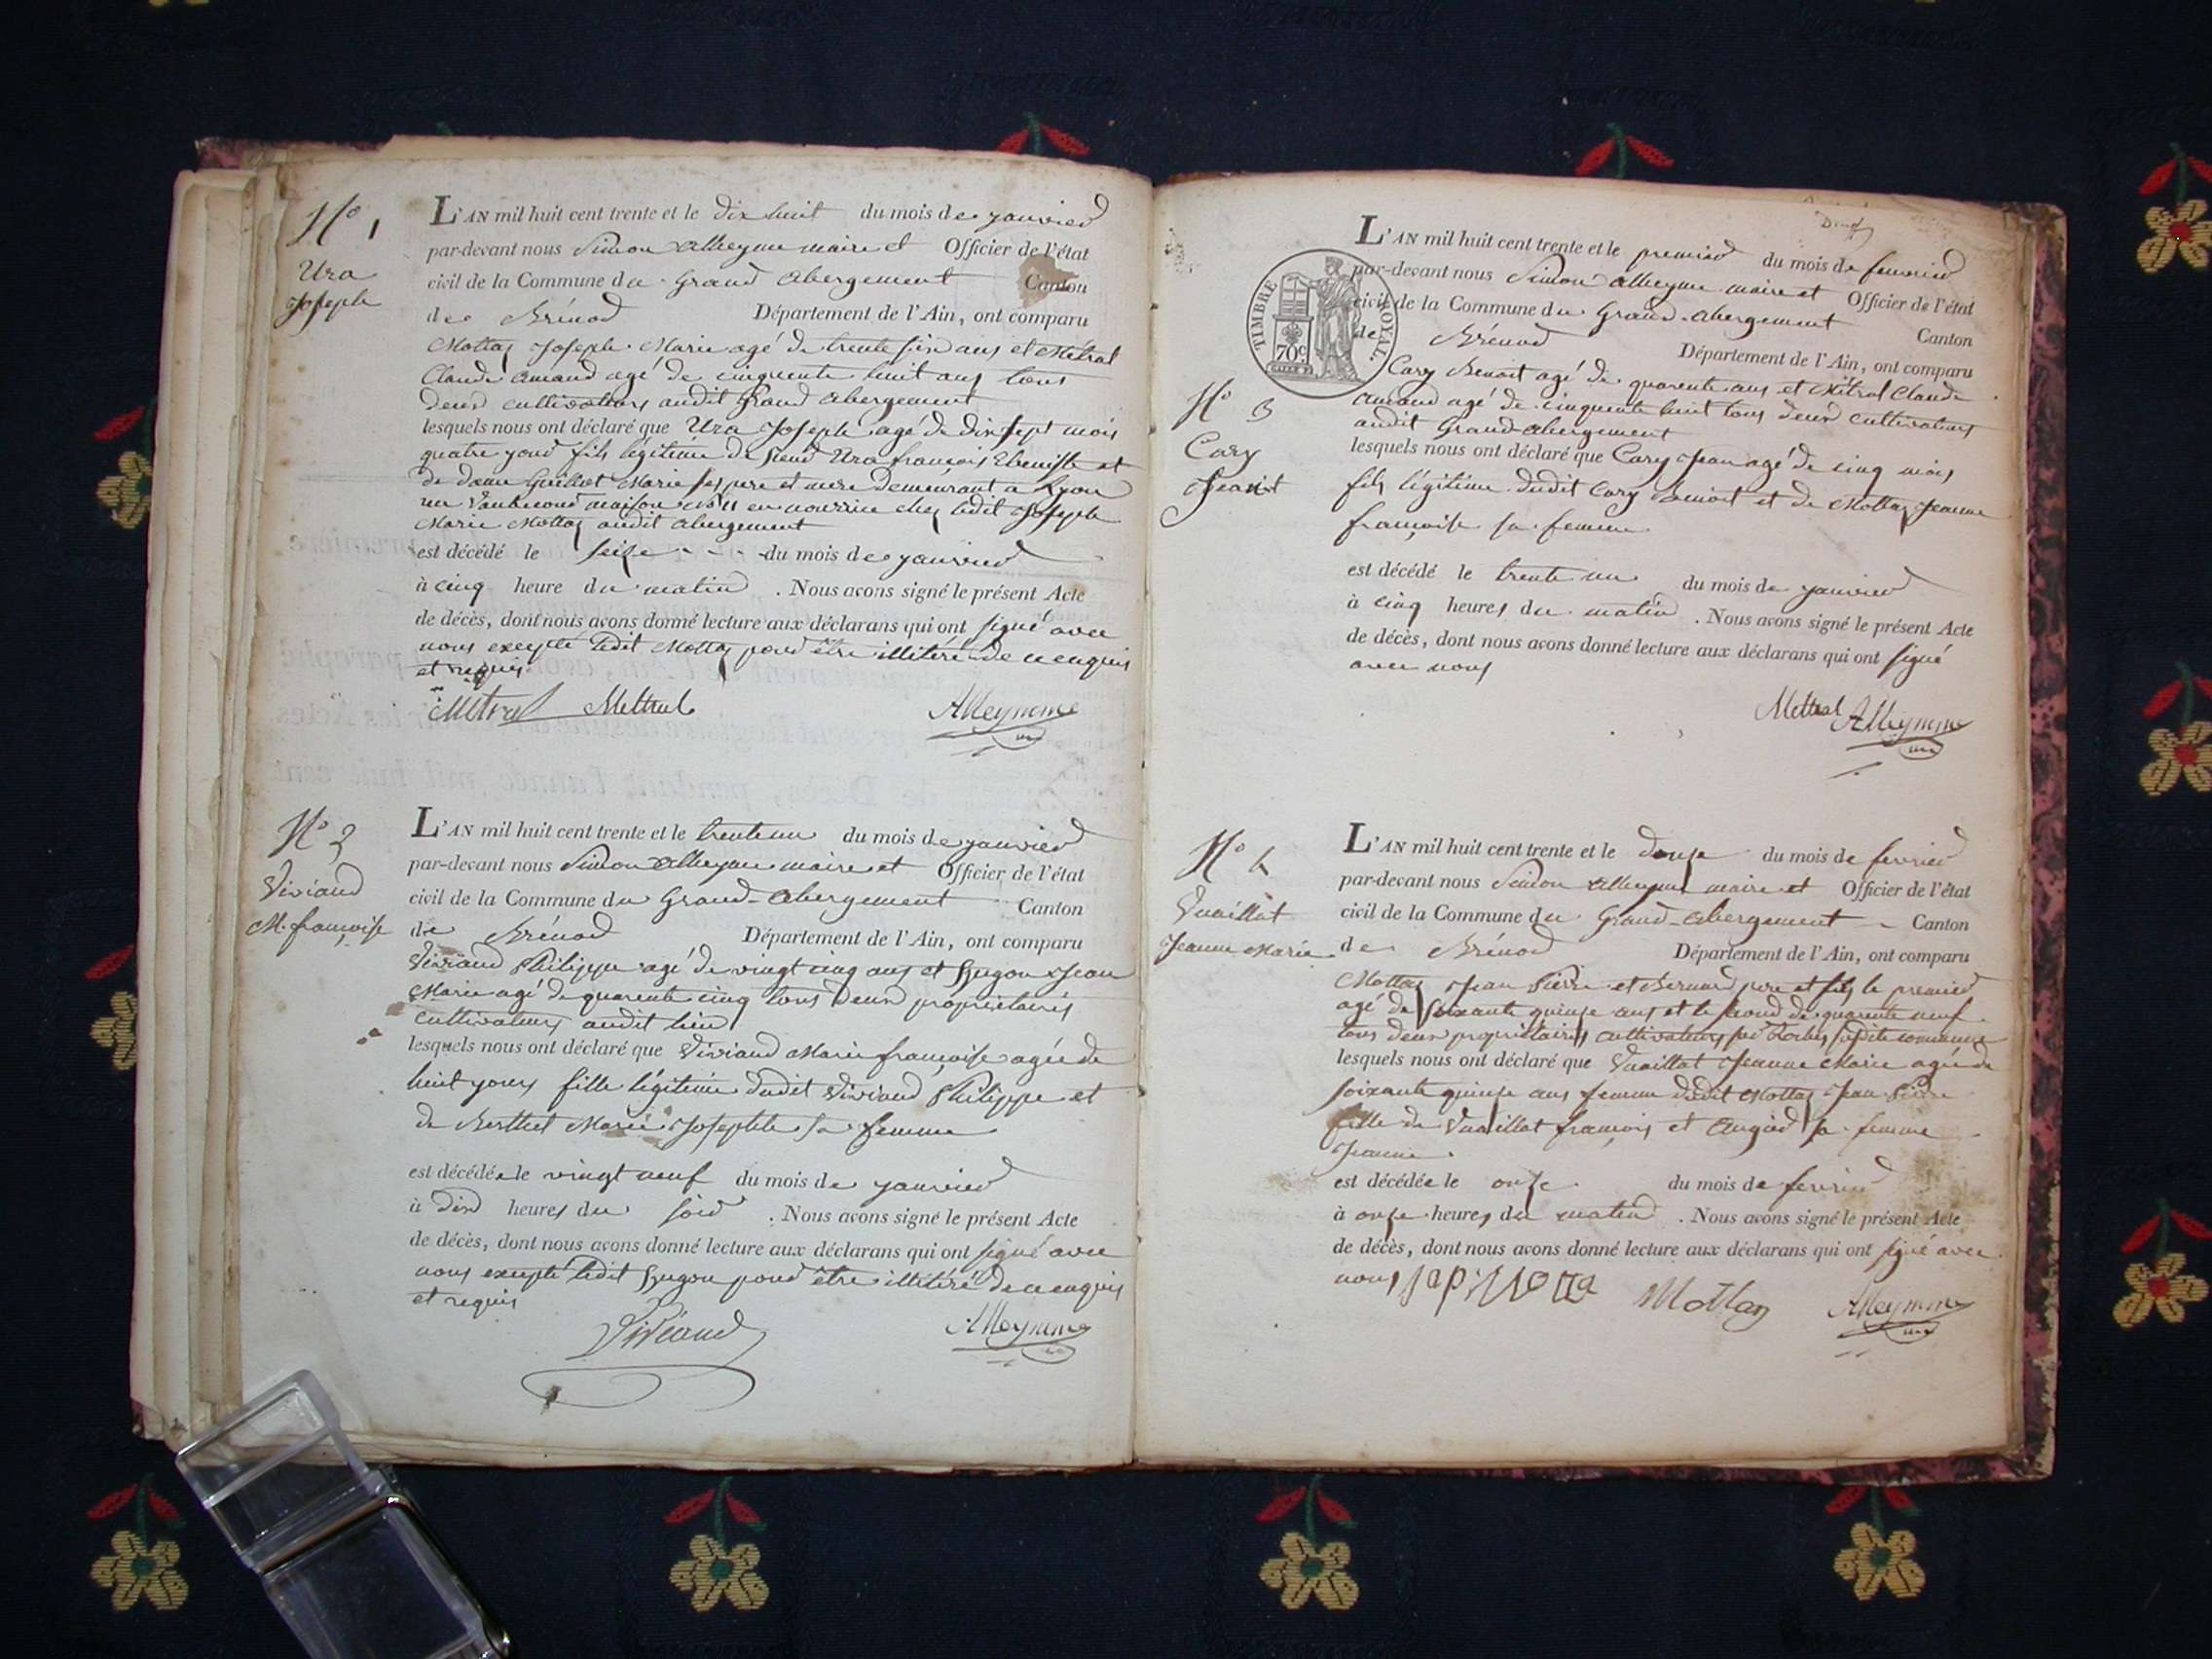 N° 1
Ura
Joseph
L'AN mil huit cent trente et le dix huit du mois de janvier
par-devant nous Simon Alleyme maire et Officier de l'état
civil de la Commune du Grand abergement Canton
de Brénod Département de l'Ain, ont comparu
Mottaz Joseph Marie agé de trente six ans et Métral
Claude Amand agé de cinquente huit ans tous
deux cultivateurs audit Grand abergement
lesquels nous ont déclaré que Ura Joseph agé de dix sept mois
quatre jours fils légitime de Sieur Ura françois Ebeniste et
de dame Guillot Marie ses pere et mere demeurant a Lyon
rue maison N° 11 en nourrice chez ledit Joseph
Marie Mottaz audit abergement
est décédé le seize du mois de janvier
à cinq heure du matin . Nous avons signé le présent Acte
de décès, dont nous avons donné lecture aux déclarans qui ont signé avec
nous excepté ledit Mottaz pour être illitéré de ce enquis
et requis
Métral Mettral Alleymme
N° 2
Viviand
M. françoise
L'AN mil huit cent trente et le trente un du mois de janvier
par-devant nous Simon Alleyme maire et Officier de l'état
civil de la Commune du Grand-abergement Canton
de Brénod Département de l'Ain, ont comparu
Viviand Philippe agé de vingt cinq ans et Hugon Jean
Marie agé de quarente cinq tous deux propriétaires
cultivateurs audit lieu
lesquels nous ont déclaré que Viviand Marie françoise agée de
huit jours fille légitime dudit Viviand Philippe et
de Berthet Marie Josephte sa femme
est décédée le vingt neuf du mois de janvier
à dix heures du soir . Nous avons signé le présent Acte
de décès, dont nous avons donné lecture aux déclarans qui ont signé avec
nous excepté ledit Hugon pour être illitéré de ce enquis
et requis
Viviand Alleymme
TIMBRE ROYAL.
70c
N° 3
Cary
Jean
L'AN mil huit cent trente et le premier du mois de fevrier
par-devant nous Simon Alleyme maire et Officier de l'état
civil de la Commune du Grand-abergement Canton
de Brénod Département de l'Ain, ont comparu
Cary Benoit agé de quarente ans et Métral Claude
Amand agé de cinquente huit tous deux cultivateurs
audit Grand abergement
lesquels nous ont déclaré que Cary Jean agé de cinq mois
fils légitime dudit Cary Benoit et de Mottaz Jeanne
françoise sa femme
est décédé le trente un du mois de janvier
à cinq heures du matin . Nous avons signé le présent Acte
de décès, dont nous avons donné lecture aux déclarans qui ont signé
avec nous
Mettral Alleymme
N° 4
Vuaillat
Jeanne Marie
L'AN mil huit cent trente et le douze du mois de fevrier
par-devant nous Simon Alleyme maire et Officier de l'état
civil de la Commune du Grand-abergement Canton
de Brénod Département de l'Ain, ont comparu
Mottaz Jean Pierre et Bernard pere et fils le premier
agé de soixante quinze ans et le second de quarente neuf
tous deux propriétaires cultivateurs susdite commune
lesquels nous ont déclaré que Vuaillat Jeanne Marie agée de
soixante quinze ans femme dudit Mottaz Jean Pierre
fille de Vuaillat françois et Augier sa femme
Jeanne
est décédée le onze du mois de fevrier
à onze heures du matin . Nous avons signé le présent Acte
de décès, dont nous avons donné lecture aux déclarans qui ont signé avec
nous Mottaz Alleymme